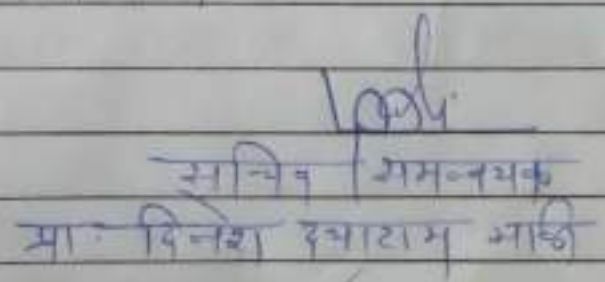 सचिव / समन्वयक
प्रा. दिनेश दयाराम माळी